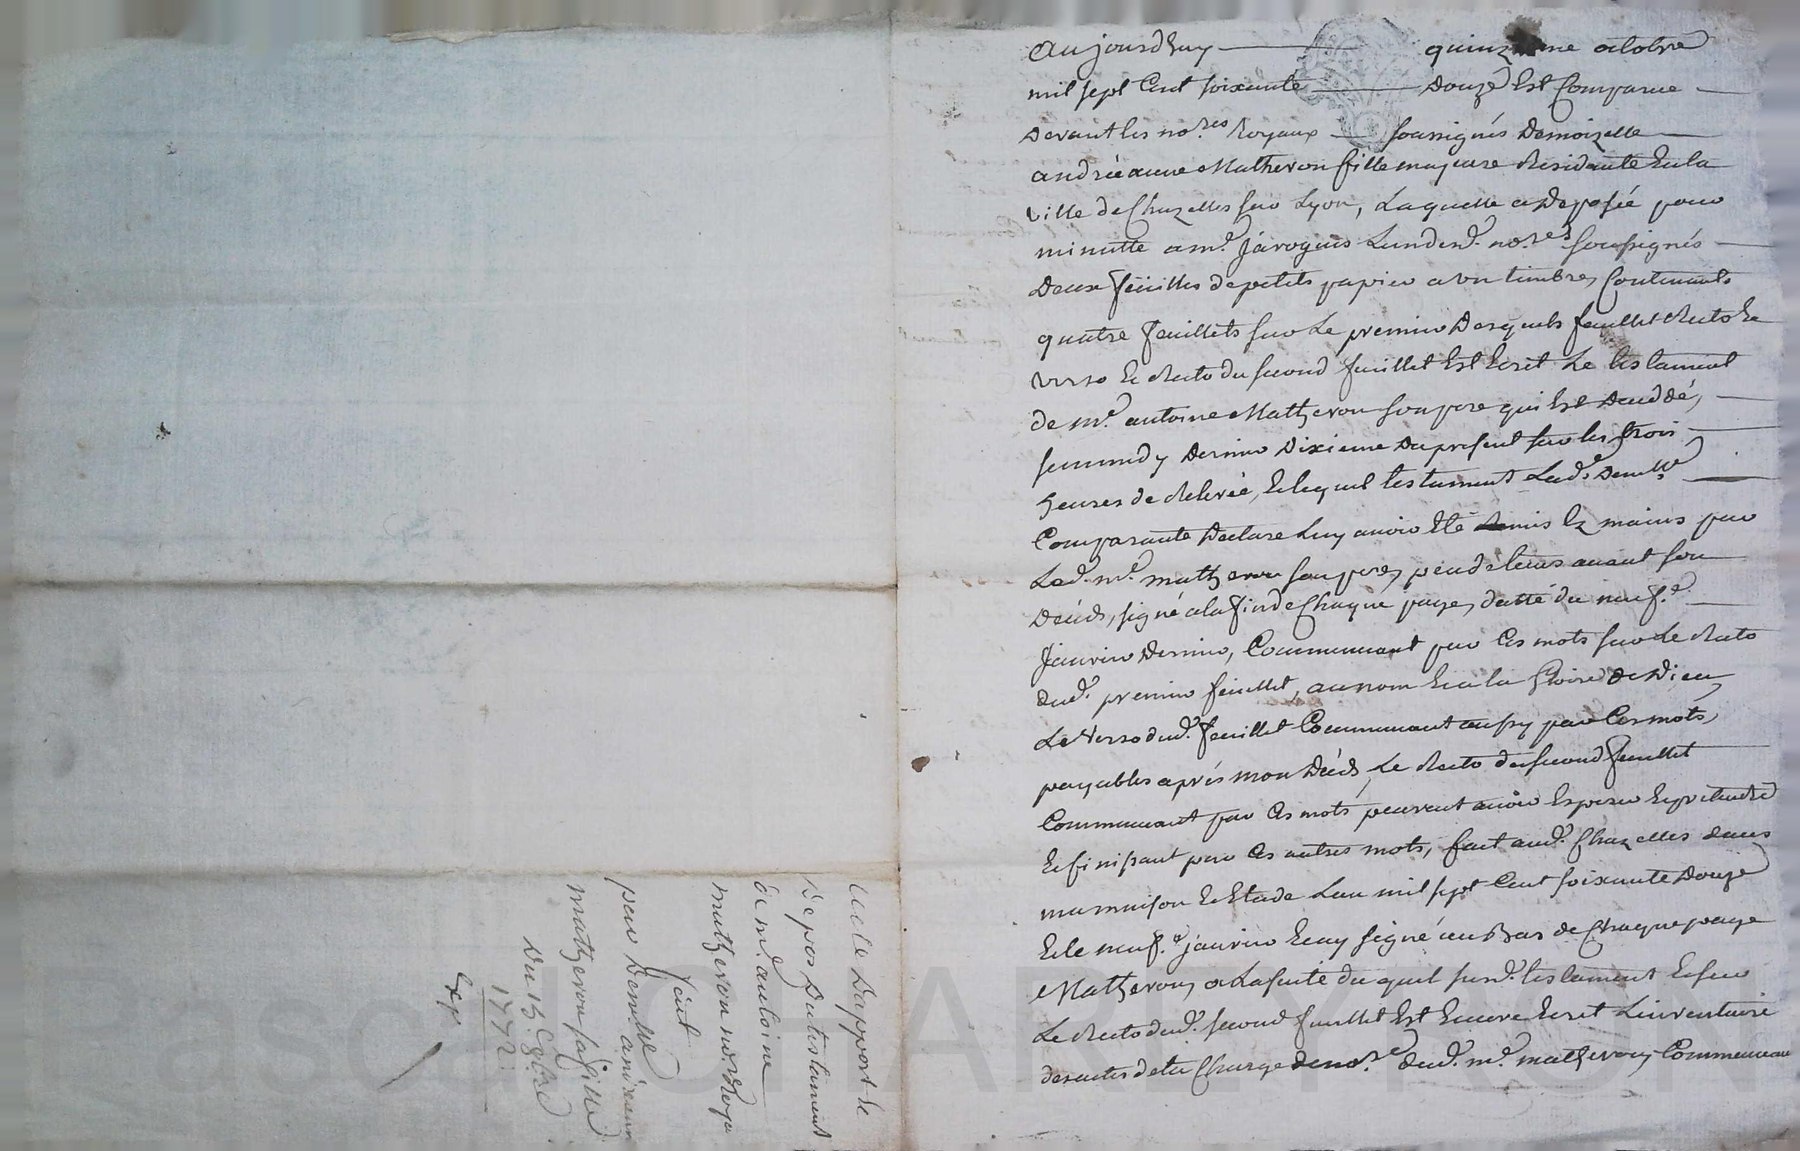 aujourdhuy quinzieme octobre
mil sept Cent soixante Douze Est Comparue
Devant les no.res Royaux soussignés Demoizelle
andrée anne Matheron fille majeure Residante En la
ville de Chazelles sur Lyon, Laquelle a Deposée pour
minutte a m.e jaroguis L'un des d. no.res soussignés
Deux feuilles de petits papier a un timbre, Contenants
quatre feuillets sur Le premier Desquels feuillet Recto Et
verso Et Recto du second feuillet Est Ecrit Le testament
de m.e antoine Matheron son pere qui Est Deceddé,
samedy Dernier Dixieme Du present sur les trois
heures de Relevée, Lequel testament Lad. Dem.lle
Comparante Declare Luy avoir Eté Remis Ez mains par
Led. m.e matheron son pere, peu de tems avant son
Deces, signé a la fin de Chaque page, datté du neuf.e
Janvier Dernier, Commencant par Ces mots sur Le Recto
dud. premier feuillet, au nom Et a la Gloire De Dieu
Le verso dud. feuillet Commencant aussy par Ces mots,
payables aprés mon Decés, Le Recto du second feuillet
Commencant par Ces mots peuvent avoir Esperer Et pretendre
Et finissant par Ces autres mots, fait aud. Chazelles dans
ma maison Et Etude L'an mil sept Cent soixante Douze
Et le neuf.e janvier Et ay signé au Bas de Chaque page
Matheron, a La suite du quel sus d. testament Et sur
Le Recto dud. second feuillet Est Encore Ecrit L'inventaire
des actes de La Charge de no.re dud. m.e matheron, Commencant
acte D'apport de
Depos Du testament
de m.e antoine
matheron no.re Royal
fait
par Dem.lle andréanne
matheron sa fille
Du 15. 8bre
1772.
Exp